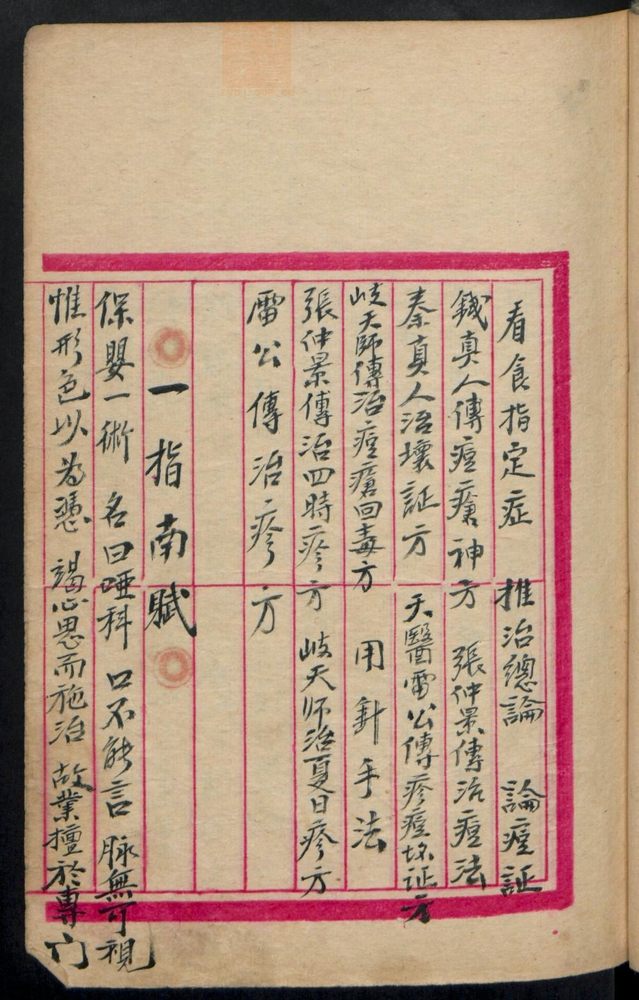 看食指定症 推治總論 論痘証
錢真人傳痘瘡神方 張仲景傳治痘法
秦真人治壞証方 天醫雷公傳疹痘壞证方
岐天師傳治痘瘡回毒方 用針手法
張仲景傳治四時疹方 岐天师治夏日疹方
雷公傳治疹方
一指南賦
保嬰一術 名曰啞科 口不能言 脉無可視
惟形色以為憑 竭心思而施治 故業擅於專门